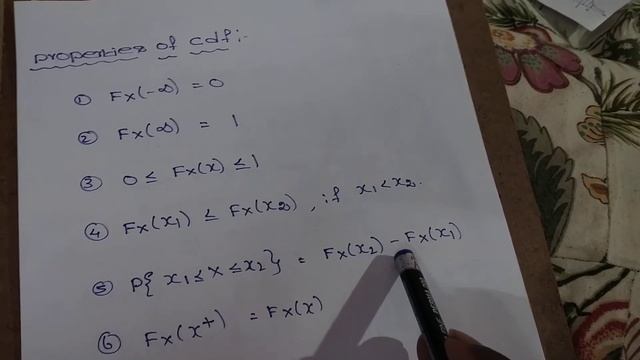 properties of cdf:-
① Fx(-∞) = 0
② Fx(∞) = 1
③ 0 ≤ Fx(x) ≤ 1
④ Fx(x1) ≤ Fx(x2), if x1 < x2.
⑤ P{ x1 ≤ x ≤ x2 } = Fx(x2) - Fx(x1)
⑥ Fx(x+) = Fx(x)